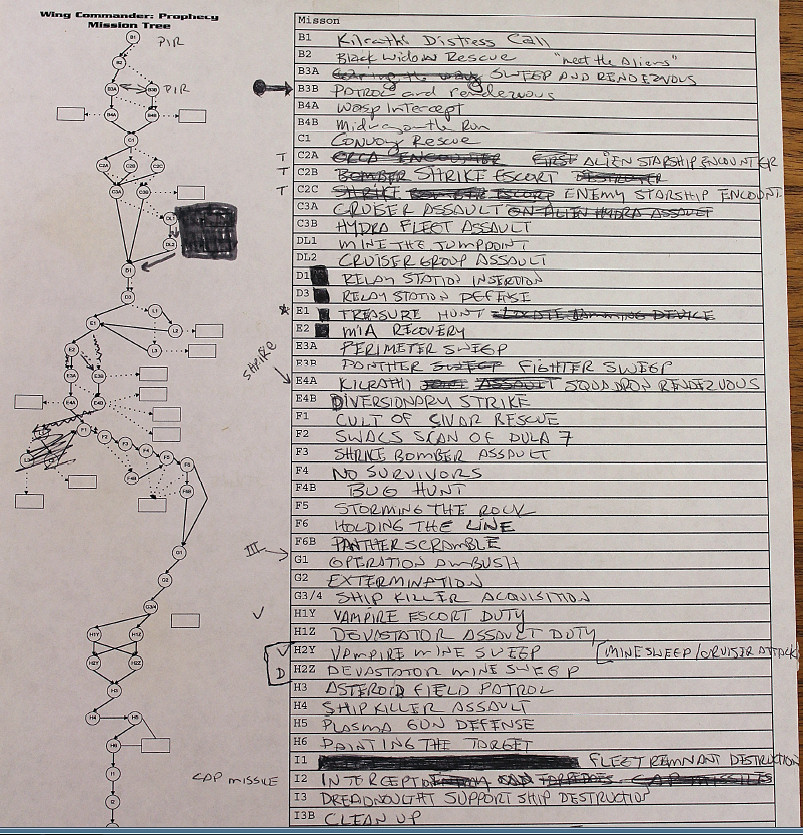 Wing Commander: Prophecy
Mission Tree
Misson
B1 Kilrathi Distress Call
B2 Black Widow Rescue "meet the Aliens"
B3A SWEEP AND RENDEZVOUS
B3B Patrol and rendezvous
B4A Wasp Intercept
B4B Midnight Run
C1 Convoy Rescue
T C2A ORCA ENCOUNTER FIRST ALIEN STARSHIP ENCOUNTER
T C2B BOMBER SHRIKE ESCORT DESTROYER
T C2C SHRIKE BOMBER ESCORT ENEMY STARSHIP ENCOUNT
C3A CRUISER ASSAULT ON ALIEN HYDRA ASSAULT
C3B HYDRA FLEET ASSAULT
DL1 MINE THE JUMPPOINT
DL2 CRUISER GROUP ASSAULT
D1 RELAY STATION INSERTION
D3 RELAY STATION DEFENSE
E1 TREASURE HUNT LOCATE JAMMING DEVICE
E2 MIA RECOVERY
E3A PERIMETER SWEEP
E3B PANTHER SWEEP FIGHTER SWEEP
E4A KILRATHI ASSAULT SQUADRON RENDEZVOUS
E4B DIVERSIONARY STRIKE
F1 CULT OF SIVAR RESCUE
F2 SWACS SCAN OF DULA 7
F3 SHRIKE BOMBER ASSAULT
F4 NO SURVIVORS
F4B BUG HUNT
F5 STORMING THE ROCK
F6 HOLDING THE LINE
F6B PANTHER SCRAMBLE
G1 OPERATION AMBUSH
G2 EXTERMINATION
G3/4 SHIP KILLER ACQUISITION
H1Y VAMPIRE ESCORT DUTY
H1Z DEVASTATOR ASSAULT DUTY
V H2Y VAMPIRE MINE SWEEP [MINESWEEP/CRUISER ATTACK
D H2Z DEVASTATOR MINE SWEEP
H3 ASTEROID FIELD PATROL
H4 SHIP KILLER ASSAULT
H5 PLASMA GUN DEFENSE
H6 PAINTING THE TARGET
I1 FLEET REMNANT DESTRUCTION
I2 INTERCEPT TORPEDOES CAP MISSILES
I3 DREADNOUGHT SUPPORT SHIP DESTRUCTION
I3B CLEAN UP
PIR
PIR
SHRIKE
III
CAP MISSILE
B1
B2
B3A B3B
B4A B4B
C1
C2A C2B C2C
C3A C3B
DL1
DL2
D1
D3
L1
E1
L2
E2 L3
E3A E3B
E4A E4B
F1
F2
F3
F4
F5
F6
F4B
F6B
G1
G2
G3/4
H1Y H1Z
H2Y H2Z
H3
H4 H5
H6
I1
I2